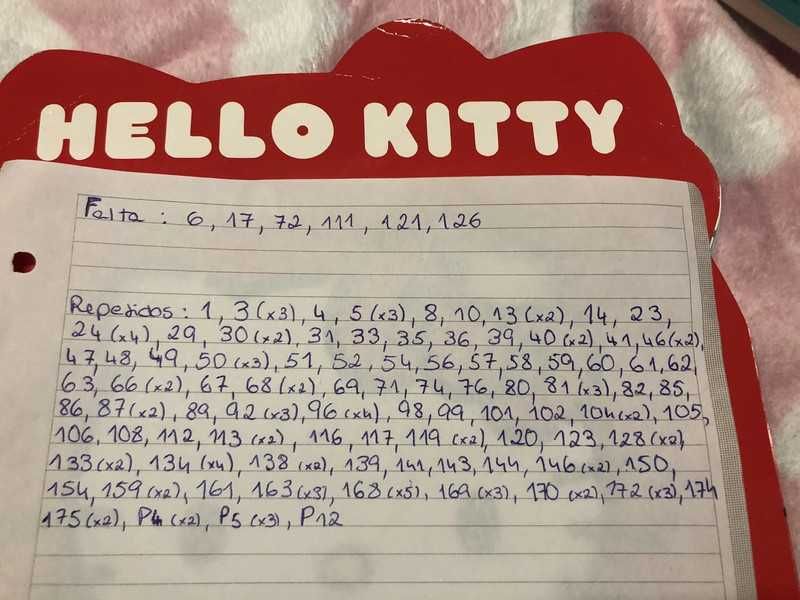 HELLO KITTY
Falta : 6, 17, 72, 111, 121, 126
Repetidos : 1, 3 (x3), 4, 5 (x3), 8, 10, 13 (x2), 14, 23,
24 (x4), 29, 30 (x2), 31, 33, 35, 36, 39, 40 (x2), 41, 46 (x2),
47, 48, 49, 50 (x3), 51, 52, 54, 56, 57, 58, 59, 60, 61, 62,
63, 66 (x2), 67, 68 (x2), 69, 71, 74, 76, 80, 81 (x3), 82, 85,
86, 87 (x2), 89, 92 (x3), 96 (x4), 98, 99, 101, 102, 104 (x2), 105,
106, 108, 112, 113 (x2), 116, 117, 119 (x2), 120, 123, 128 (x2),
133 (x2), 134 (x4), 138 (x2), 139, 141, 143, 144, 146 (x2), 150,
154, 159 (x2), 161, 163 (x3), 168 (x5), 169 (x3), 170 (x2), 172 (x3), 174
175 (x2), P4 (x2), P5 (x3), P12